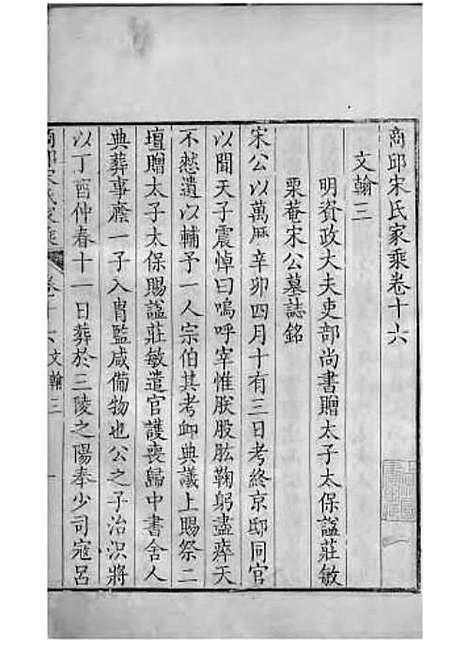 商邱宋氏家乘卷十六
文翰三
明資政大夫吏部尚書贈太子太保謚莊敏
栗菴宋公墓誌銘
宋公以萬厯辛卯四月十有三日考終京邸同官
以聞天子震悼曰嗚呼宰惟朕股肱鞠躬盡瘁天
不憖遺以輔予一人宗伯其考卹典議上賜祭二
壇贈太子太保賜謚莊敏遣官護喪歸中書舍人
典葬事廕一子入胄監咸備物也公之子治淣將
以丁酉仲春十一日葬於三陵之陽奉少司寇呂
商邱宋氏家乘 卷十六文翰三 一